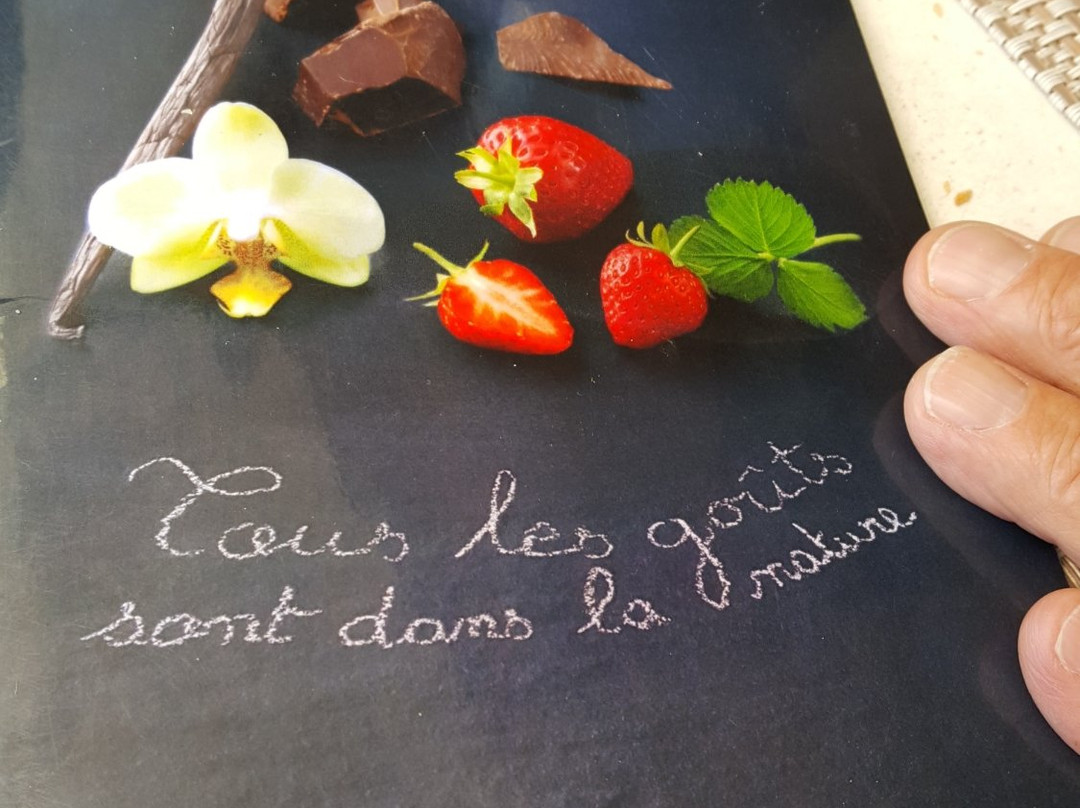 Tous les goûts
sont dans la nature